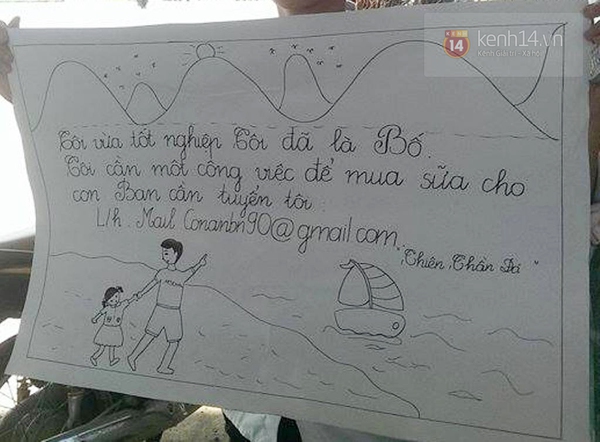 14 kenh14.vn
Kênh Giải trí - Xã hội
Tôi vừa tốt nghiệp Tôi đã là Bố.
Tôi cần một công việc để mua sữa cho
con Bạn cần tuyển tôi
L/h. Mail Conanbn90@gmail.com.
"Thiên Thần Đá"